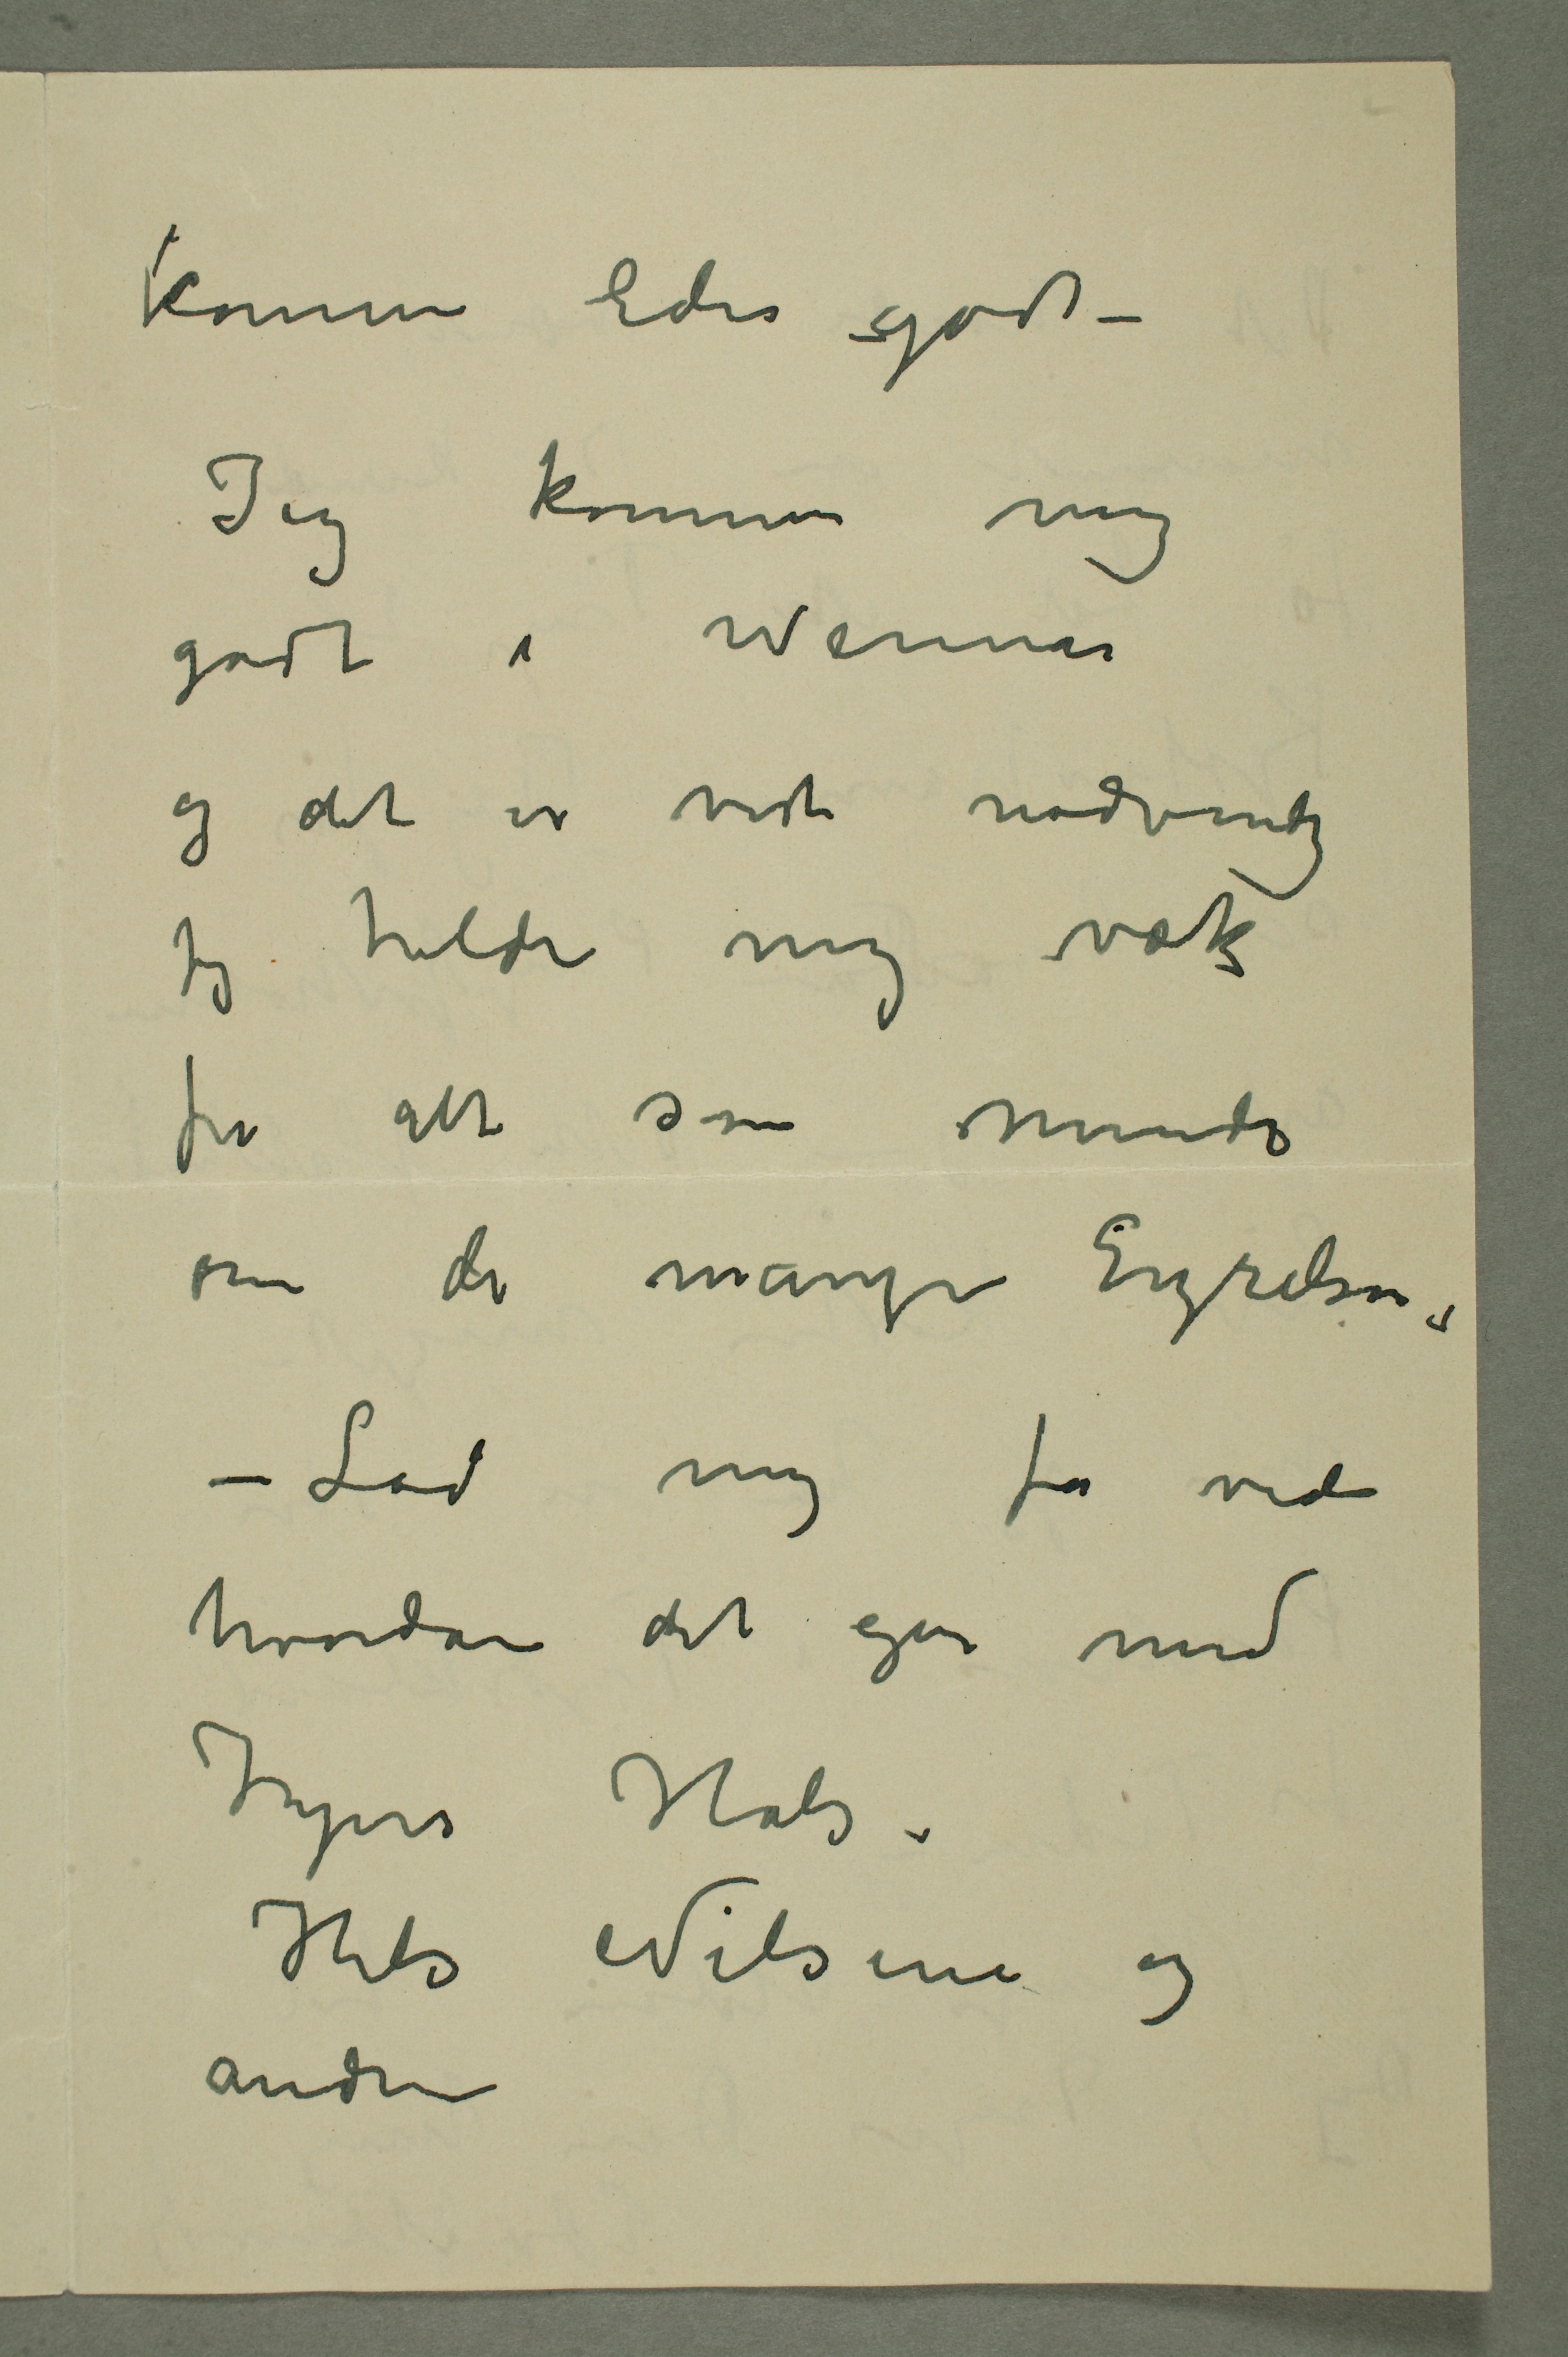 kommer Eder godt –
Jeg kommer mig
godt i Weimar
og det er vist nødvendig
jeg holder mig væk
fra alt som minder
om de mange Ergrelser.
– Lad mig få vide
hvordan det går med
Ingers Hals.
Hils Nilsens og
andre